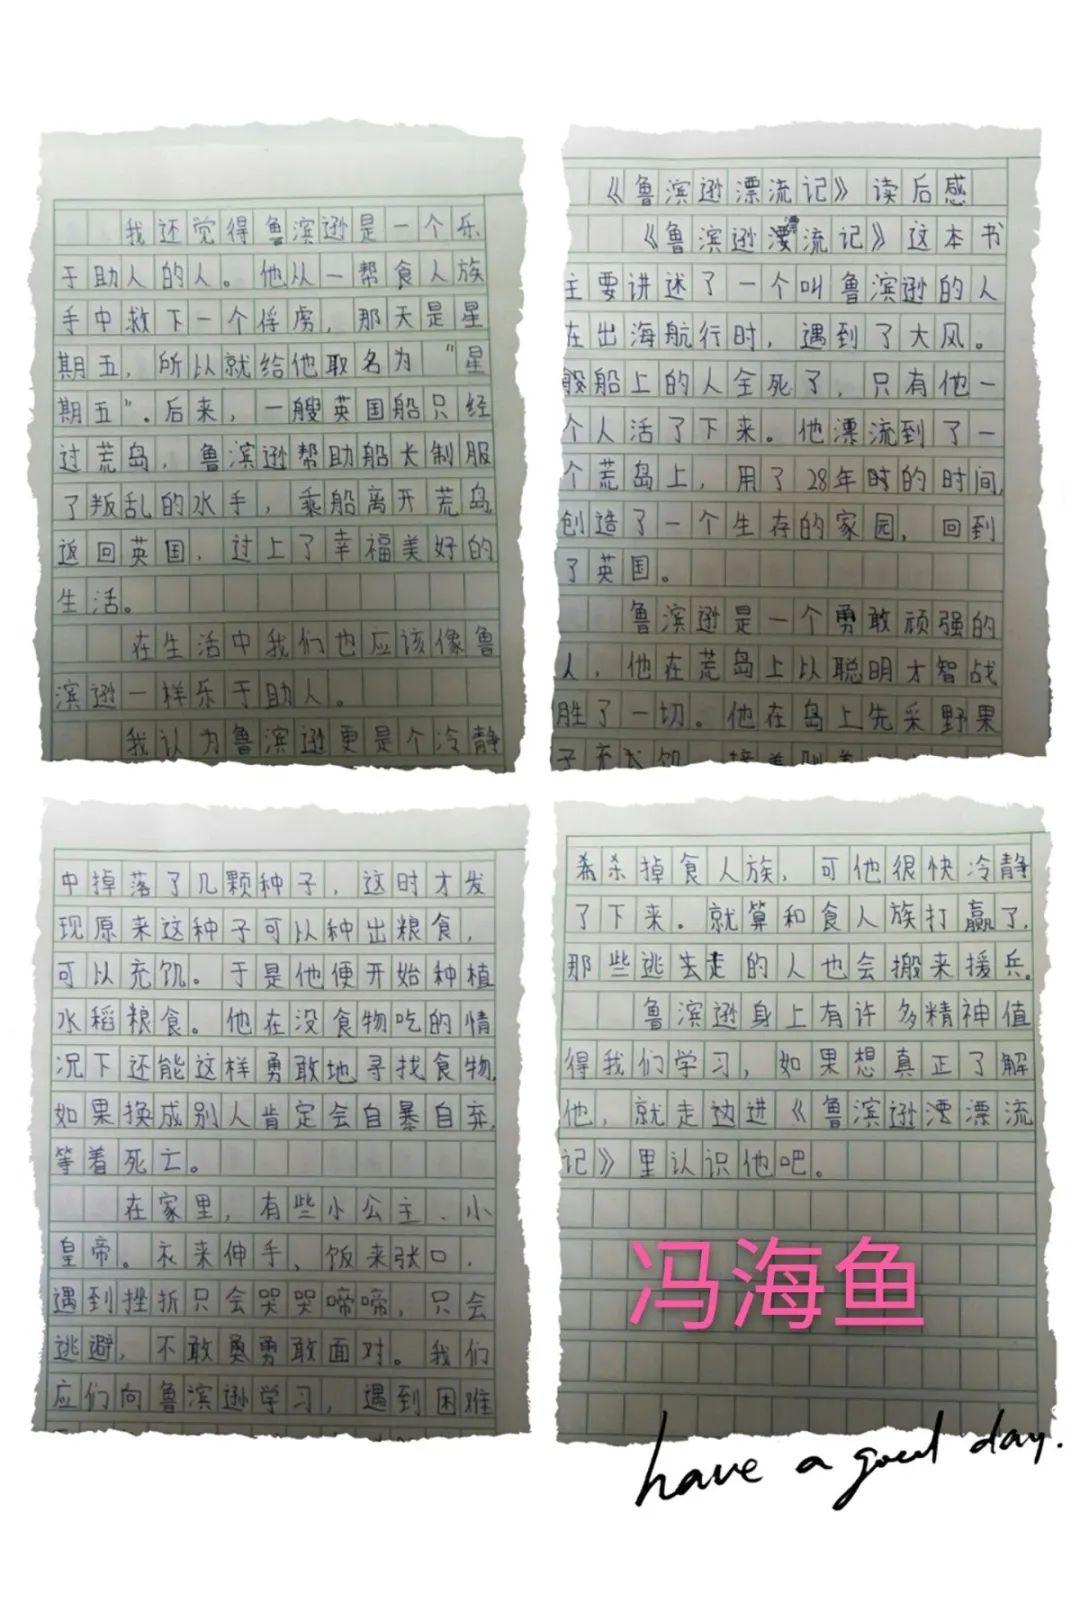 我还觉得鲁滨逊是一个乐
于助人的人。他从一帮食人族
手中救下一个俘虏，那天是星
期五，所以就给他取名为“星
期五”。后来，一艘英国船只经
过荒岛，鲁滨逊帮助船长制服
了叛乱的水手，乘船离开荒岛
返回英国，过上了幸福美好的
生活。
在生活中我们也应该像鲁
滨逊一样乐于助人。
我认为鲁滨逊更是个冷静
《鲁滨逊漂流记》读后感
《鲁滨逊漂流记》这本书
主要讲述了一个叫鲁滨逊的人
在出海航行时，遇到了大风。
般船上的人全死了，只有他一
个人活了下来。他漂流到了一
个荒岛上，用了28年时的时间，
创造了一个生存的家园，回到
了英国。
鲁滨逊是一个勇敢顽强的
人，他在荒岛上以聪明才智战
胜了一切。他在岛上先采野果
子充饥
中掉落了几颗种子，这时才发
现原来这种子可以种出粮食，
可以充饥。于是他便开始种植
水稻粮食。他在没食物吃的情
况下还能这样勇敢地寻找食物，
如果换成别人肯定会自暴自弃，
等着死亡。
在家里，有些小公主、小
皇帝。衣来伸手、饭来张口，
遇到挫折只会哭哭啼啼，只会
逃避，不敢勇勇敢面对。我们
应们向鲁滨逊学习，遇到困难
杀杀掉食人族，可他很快冷静
了下来。就算和食人族打赢了，
那些逃去走的人也会搬来援兵。
鲁滨逊身上有许多精神值
得我们学习，如果想真正了解
他，就走边进《鲁滨逊漂漂流
记》里认识他吧。
冯海鱼
have a good day.